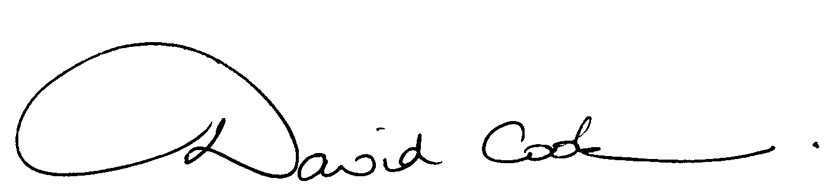 David Cook.